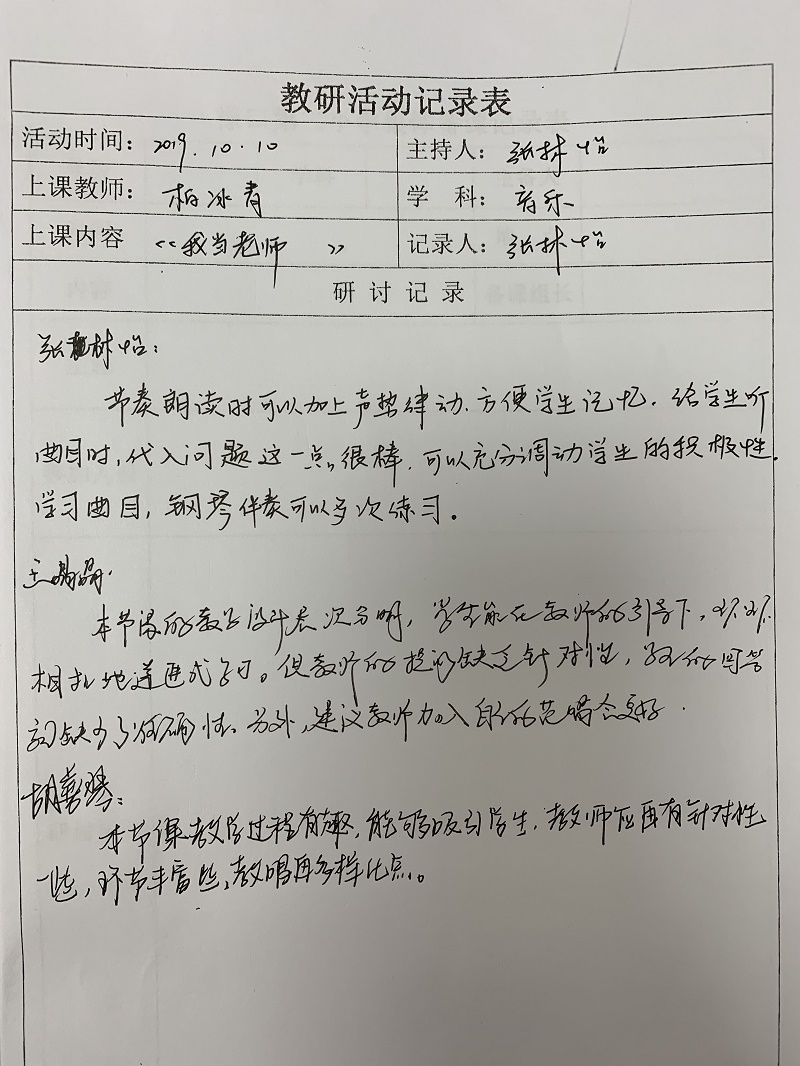 教研活动记录表
活动时间：2019.10.10 主持人：张林怡
上课教师：柏冰青 学 科：音乐
上课内容 《我当老师 》 记录人：张林怡
研讨记录
张林怡：
节奏朗读时可以加上声势律动.方便学生记忆.给学生听
曲目时,代入问题这一点,很棒,可以充分调动学生的积极性.
学习曲目,钢琴伴奏可以多次练习。
王
本节课的教学设计层次分明,学生能在教师的引导下,环环
相扣地递进式学习。但教师的提问缺乏针对性,学生的回答
缺少了明确性.另外,建议教师加入自己的范唱会更好.
胡善琴：
本节课教学过程有趣,能够吸引学生.教师应再有针对性
一些,环节丰富些,教唱再多样化点。